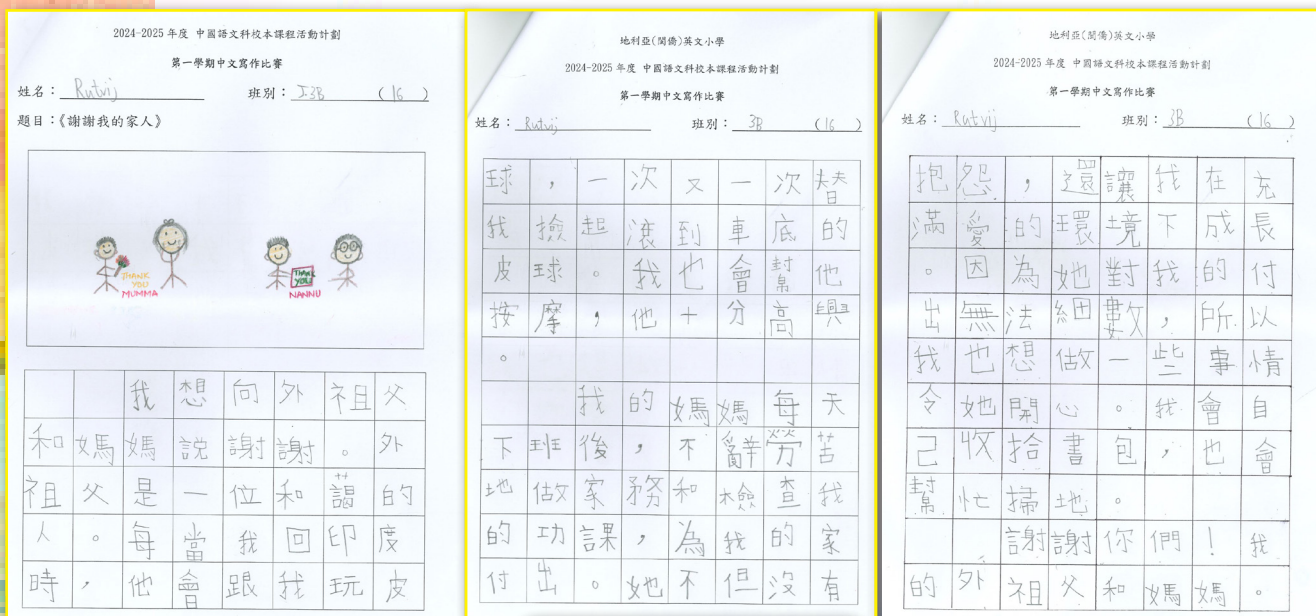 2024-2025 年度 中國語文科校本課程活動計劃
第一學期中文寫作比賽
姓名：Rutvij 班別：I.3B (16)
題目：《謝謝我的家人》
THANK YOU MUMMA
THANK YOU NANNU
我想向外祖父
和媽媽說謝謝。外
祖父是一位和藹的
人。每當我回印度
時，他會跟我玩皮
地利亞(閩僑)英文小學
2024-2025 年度 中國語文科校本課程活動計劃
第一學期中文寫作比賽
姓名：Rutvij 班別：3B (16)
球，一次又一次替
我撿起滾到車底的
皮球。我也會幫他
按摩，他十分高興
。
我的媽媽每天
下班後，不辭勞苦
地做家務和檢查我
的功課，為我的家
付出。她不但沒有
地利亞(閩僑)英文小學
2024-2025 年度 中國語文科校本課程活動計劃
第一學期中文寫作比賽
姓名：Rutvij 班別：3B (16)
抱怨，還讓我在充
滿愛的環境下成長
。因為她對我的付
出無法細數，所以
我也想做一些事情
令她開心。我會自
己收拾書包，也會
幫忙掃地。
謝謝你們！我
的外祖父和媽媽。